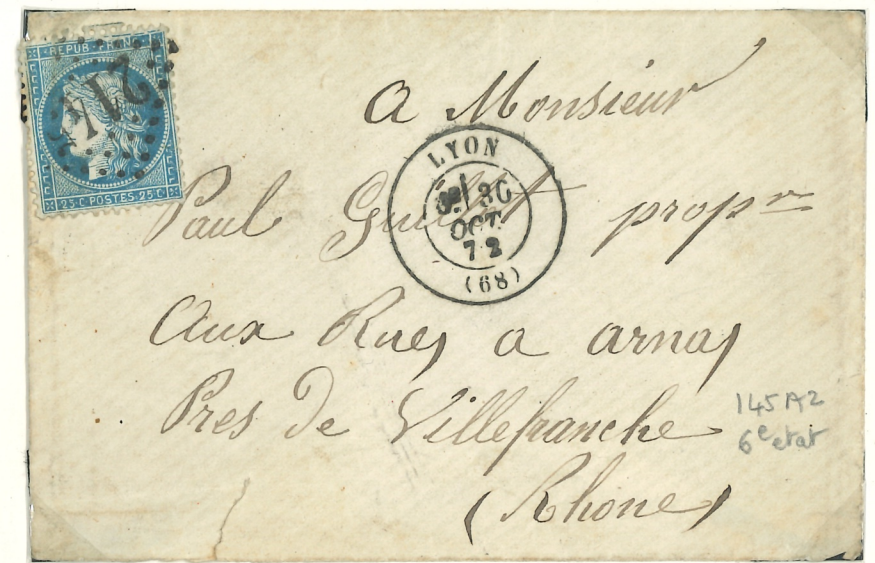 REPUB FRANC
2145
25 C POSTES 25 C
A Monsieur
LYON
3E/ 30
OCT.
72
(68)
Paul propre
Aux Rues a arnas
Pres de Villefranche
(Rhone)
145 A2
6e etat